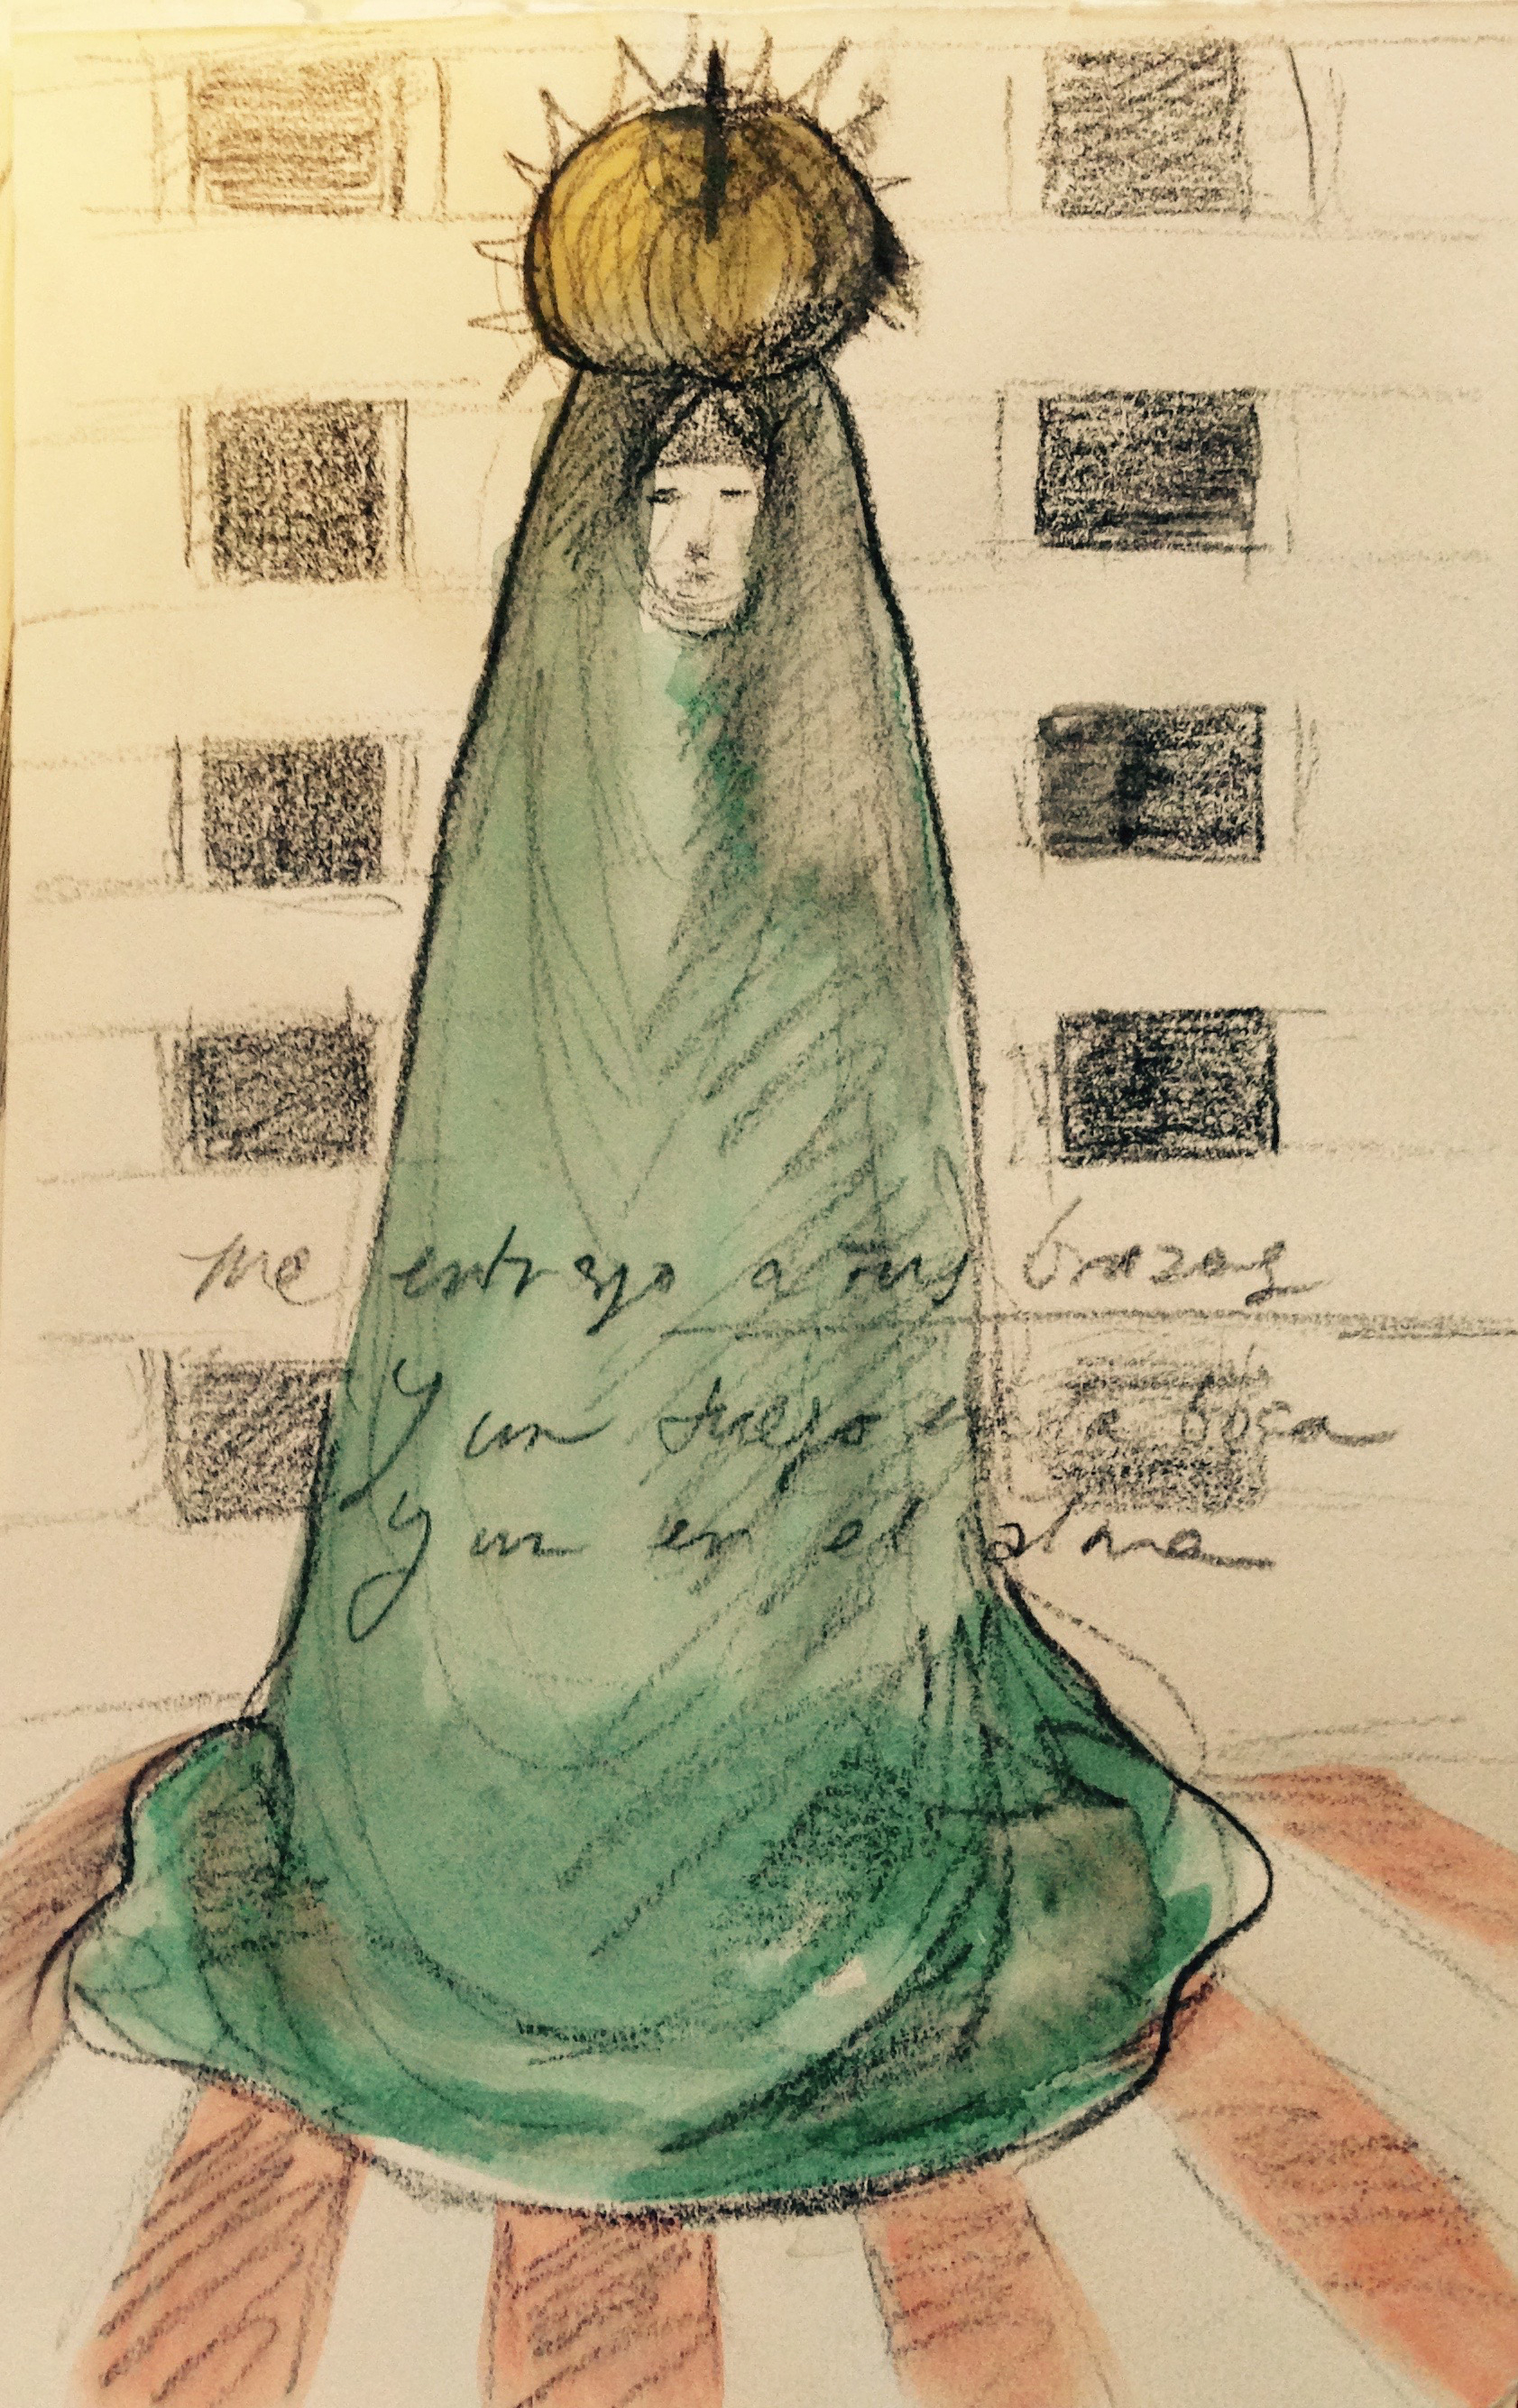 me entrego a tus brazos
Y un fuego en la boca
y un en el alma